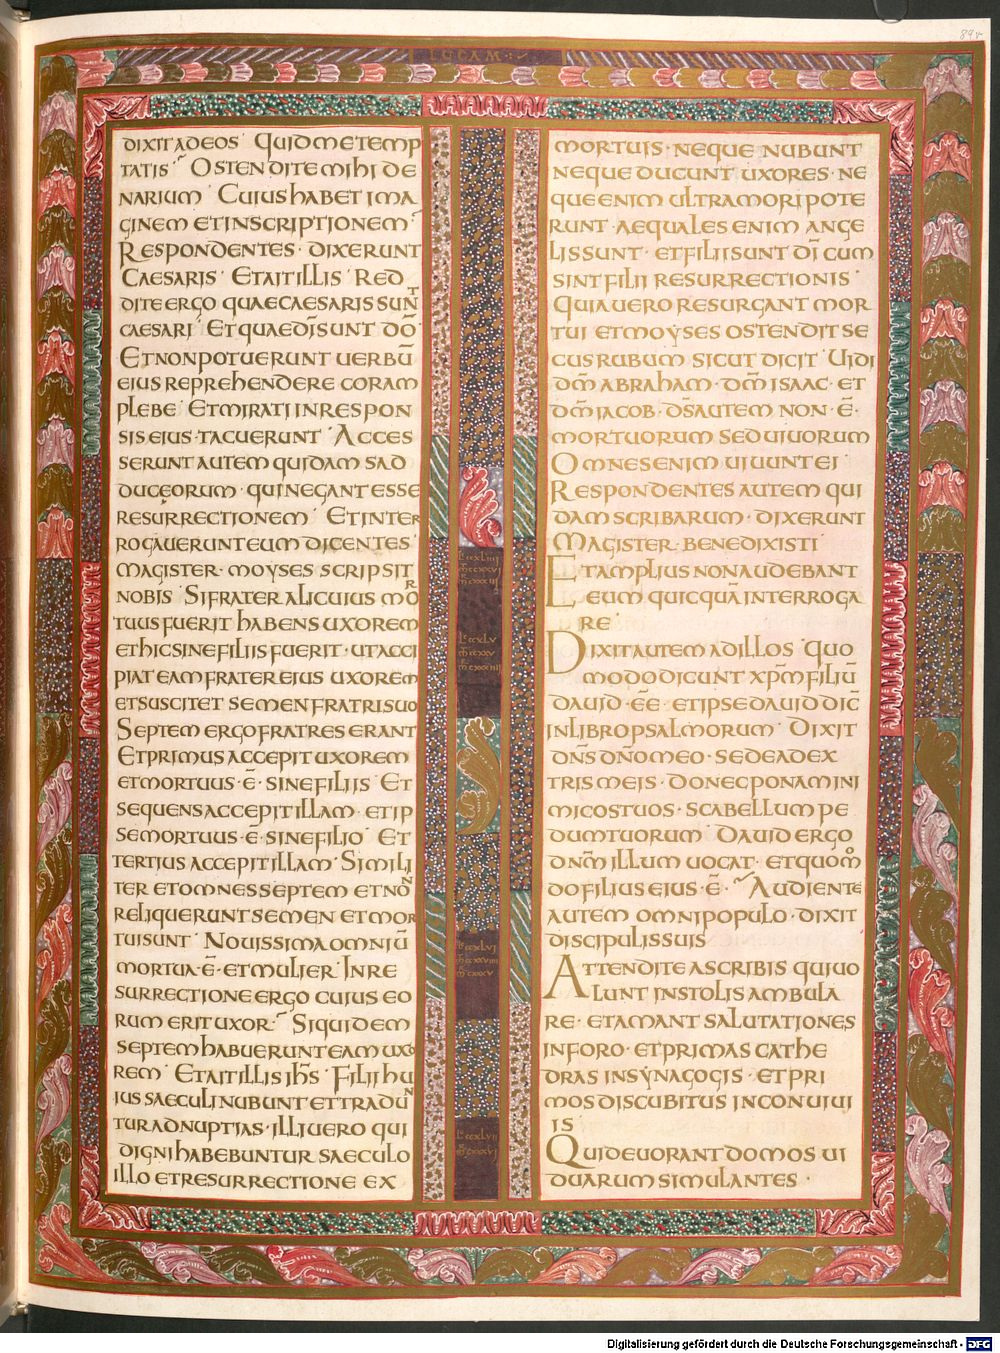 89r
LUCAM
DIXIT AD EOS · QUID ME TEMP
TATIS · OSTENDITE MIHI DE
NARIUM · CUIUS HABET IMA
GINEM ET INSCRIPTIONEM
RESPONDENTES · DIXERUNT
CAESARIS · ET AIT ILLIS · RED
DITE ERGO QUAE CAESARIS SUNT
CAESARI · ET QUAE DI̅ SUNT DO̅ ·
ET NON POTUERUNT UERBU̅
EIUS REPREHENDERE CORAM
PLEBE · ET MIRATI IN RESPON
SIS EIUS · TACUERUNT · ACCES
SERUNT AUTEM QUIDAM SAD
DUCEORUM · QUI NEGANT ESSE
RESURRECTIONEM · ET INTER
ROGAUERUNT EUM DICENTES ·
MAGISTER · MOYSES SCRIPSIT
NOBIS · SI FRATER ALICUIUS MOR
TUUS FUERIT HABENS UXOREM
ET HIC SINE FILIIS FUERIT · UT ACCI
PIAT EAM FRATER EIUS UXOREM
ET SUSCITET SEMEN FRATRI SUO
SEPTEM ERGO FRATRES ERANT
ET PRIMUS ACCEPIT UXOREM
ET MORTUUS · E̅ · SINE FILIIS · ET
SEQUENS ACCEPIT ILLAM · ET IP
SE MORTUUS · E̅ · SINE FILIO · ET
TERTIUS ACCEPIT ILLAM · SIMILI
TER ET OMNES SEPTEM ET NON
RELIQUERUNT SEMEN ET MOR
TUI SUNT · NOUISSIMA OMNIU̅
MORTUA · E̅ · ET MULIER · IN RE
SURRECTIONE ERGO CUIUS EO
RUM ERIT UXOR · SIQUIDEM
SEPTEM HABUERUNT EAM UXO
REM · ET AIT ILLIS IH̅S · FILII HU
IUS SAECULI NUBUNT ET TRADUN
TUR AD NUPTIAS · ILLI UERO QUI
DIGNI HABEBUNTUR SAECULO
ILLO ET RESURRECTIONE EX
L̅ ccxlv
L̅ ccxlvi
L̅ ccxlvii
MORTUIS · NEQUE NUBUNT
NEQUE DUCUNT UXORES · NE
QUE ENIM ULTRA MORI POTE
RUNT · AEQUALES ENIM ANGE
LIS SUNT · ET FILII SUNT DI̅ CUM
SINT FILII RESURRECTIONIS ·
QUIA UERO RESURGANT MOR
TUI ET MOYSES OSTENDIT SE
CUS RUBUM SICUT DICIT · UIDI
DN̅M ABRAHAM · DN̅M ISAAC · ET
DN̅M IACOB · DS̅ AUTEM NON · E̅ ·
MORTUORUM SED UIUORUM
OMNES ENIM UIUUNT EI ·
RESPONDENTES AUTEM QUI
DAM SCRIBARUM · DIXERUNT
MAGISTER · BENE DIXISTI
ET AMPLIUS NON AUDEBANT
EUM QUICQUA̅ INTERROGA
RE
DIXIT AUTEM AD ILLOS · QUO
MODO DICUNT XP̅M FILIU̅
DAUID · EE̅ · ET IPSE DAUID DIC̅
IN LIBRO PSALMORUM · DIXIT
DN̅S DN̅O MEO · SEDE A DEX
TRIS MEIS · DONEC PONAM INI
MICOS TUOS · SCABELLUM PE
DUM TUORUM · DAUID ERGO
DN̅M ILLUM UOCAT · ET QUOMO
DO FILIUS EIUS · E̅ · AUDIENTE
AUTEM OMNI POPULO · DIXIT
DISCIPULIS SUIS
ATTENDITE A SCRIBIS QUI UO
LUNT IN STOLIS AMBULA
RE · ET AMANT SALUTATIONES
IN FORO · ET PRIMAS CATHE
DRAS IN SYNAGOGIS · ET PRI
MOS DISCUBITUS IN CONUIUI
IS
QUI DEUORANT DOMOS UI
DUARUM SIMULANTES ·
Digitalisierung gefördert durch die Deutsche Forschungsgemeinschaft - DFG